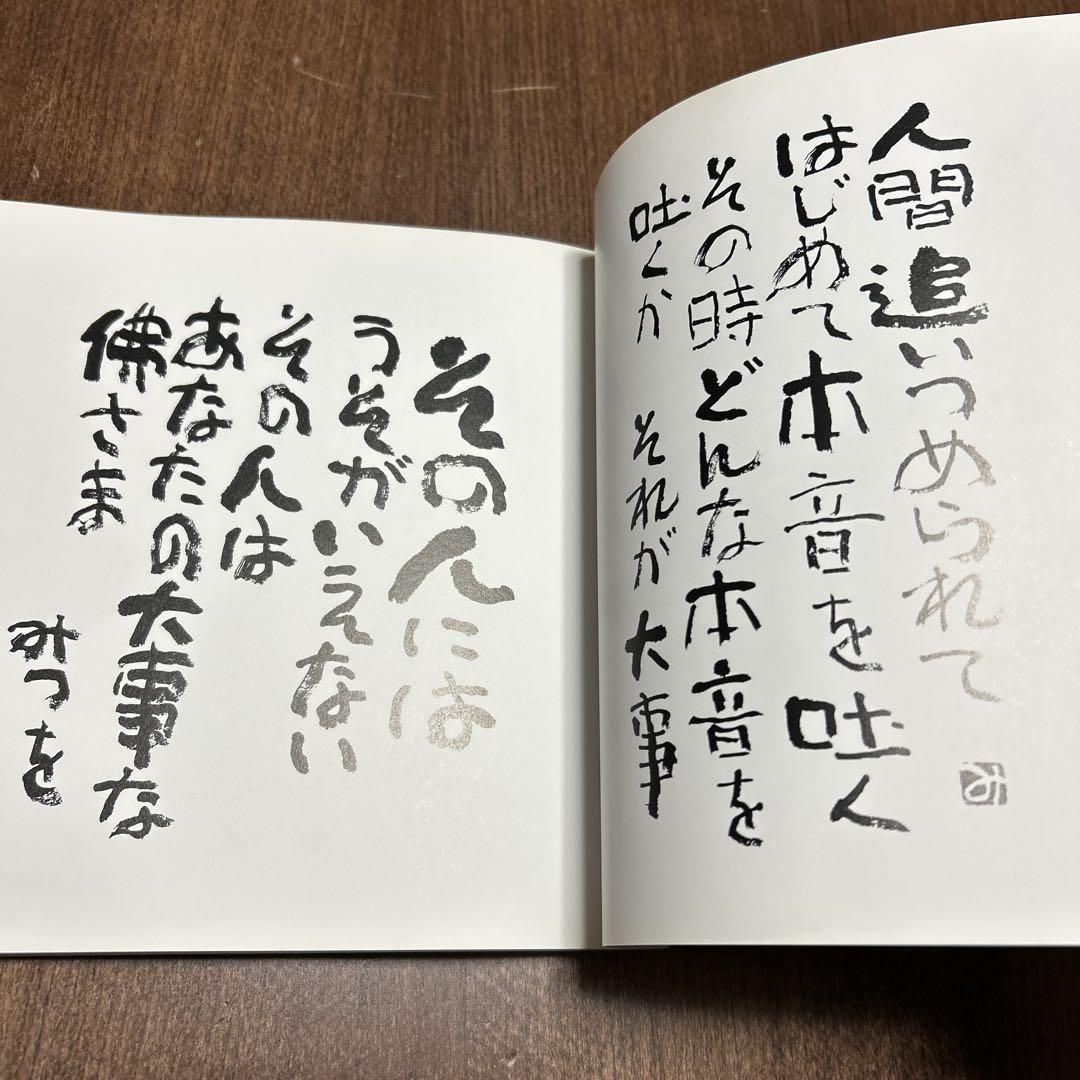 人間追いつめられて
はじめて本音を吐く
その時どんな本音を
吐くか それが大事
その人には
うそがいえない
その人は
あなたの大事な
佛さま
みつを